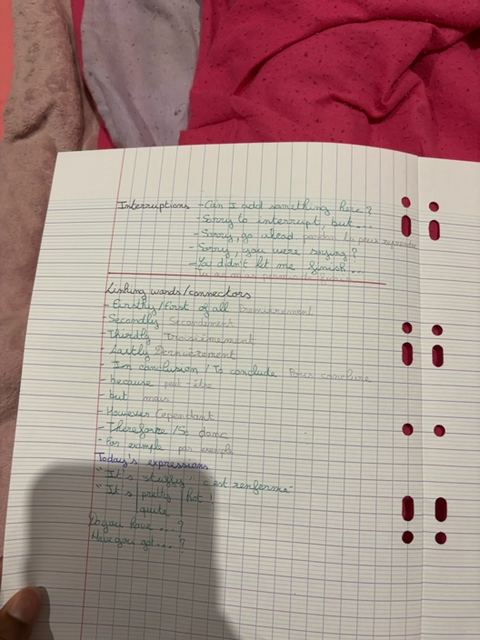 Interruptions - Can I add something here ?
- Sorry to interrupt, but...
- Sorry, go ahead pardon tu peux reprendre
- Sorry, you were saying ?
- You didn't let me finish...
Linking words/connectors
- Firstly/First of all Premièrement
- Secondly Secondement
- Thirdly Troisièmement
- Lastly Dernièrement
- In conclusion / To conclude Pour conclure
- because peut-être
- but mais
- However Cependant
- Therefore /So donc
- For example par exemple
Today's expressions
- "It's stuffy" c'est renfermé
- "It's pretty hot !
quite
Do you have ... ?
Have you got ... ?